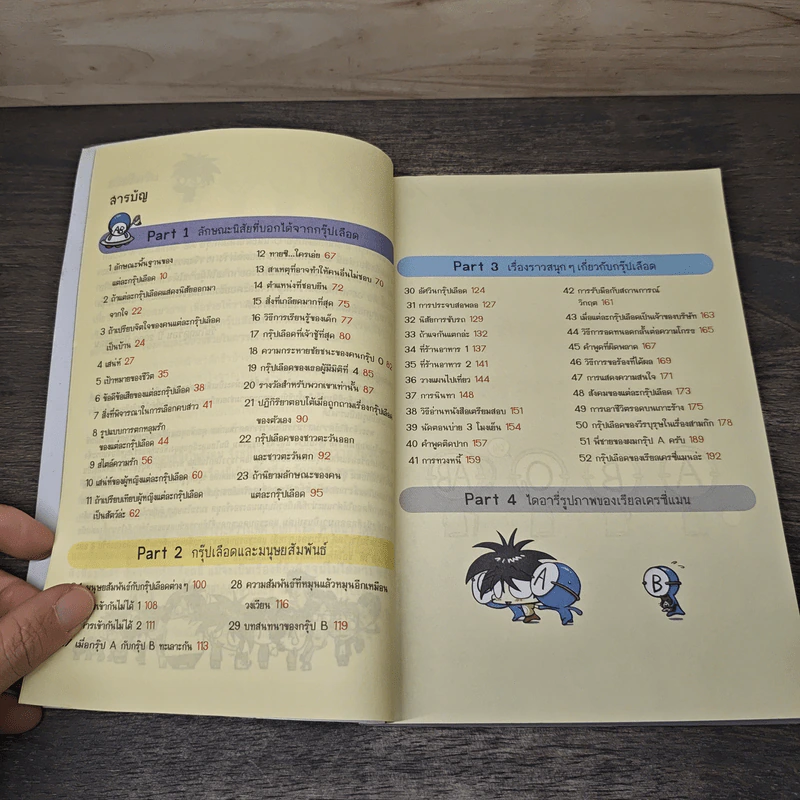 สารบัญ
AB
Part 1 ลักษณะนิสัยที่บอกได้จากกรุ๊ปเลือด
1 ลักษณะพื้นฐานของ
แต่ละกรุ๊ปเลือด 10
2 ถ้าแต่ละกรุ๊ปเลือดแสดงนิสัยออกมา
จากใจ 22
3 ถ้าเปรียบจิตใจของคนแต่ละกรุ๊ปเลือด
เป็นบ้าน 24
4 เสน่ห์ 27
5 เป้าหมายของชีวิต 35
6 ข้อดีข้อเสียของแต่ละกรุ๊ปเลือด 38
7 สิ่งที่พิจารณาในการเลือกคบสาว 41
8 รูปแบบการตกหลุมรัก
ของแต่ละกรุ๊ปเลือด 44
9 สไตล์ความรัก 56
10 เสน่ห์ของผู้หญิงแต่ละกรุ๊ปเลือด 60
11 ถ้าเปรียบเทียบผู้หญิงแต่ละกรุ๊ปเลือด
เป็นสัตว์ล่ะ 62
12 ทายซิ...ใครเอ่ย 67
13 สาเหตุที่อาจทำให้คนอื่นไม่ชอบ 70
14 ตำแหน่งที่ชอบยืน 72
15 สิ่งที่เกลียดมากที่สุด 75
16 วิธีการเรียนรู้ของเด็ก 77
17 กรุ๊ปเลือดที่เจ้าชู้ที่สุด 80
18 ความกระหายชัยชนะของคนกรุ๊ป O 82
19 กรุ๊ปเลือดของเธอผู้มีมิติที่ 4 85
20 รางวัลสำหรับพวกเขาเท่านั้น 87
21 ปฏิกิริยาตอบโต้เมื่อถูกถามเรื่องกรุ๊ปเลือด
ของตัวเอง 90
22 กรุ๊ปเลือดของชาวตะวันออก
และชาวตะวันตก 92
23 ถ้านิยามลักษณะของคน
แต่ละกรุ๊ปเลือด 95
Part 2 กรุ๊ปเลือดและมนุษยสัมพันธ์
มนุษยสัมพันธ์กับกรุ๊ปเลือดต่างๆ 100
เข้ากันไม่ได้ 1 108
เข้ากันไม่ได้ 2 111
เมื่อกรุ๊ป A กับกรุ๊ป B ทะเลาะกัน 113
28 ความสัมพันธ์ที่หมุนแล้วหมุนอีกเหมือน
วงเวียน 116
29 บทสนทนาของกรุ๊ป B 119
Part 3 เรื่องราวสนุกๆ เกี่ยวกับกรุ๊ปเลือด
30 อัศวินกรุ๊ปเลือด 124
31 การประจงสอพลอ 127
32 นิสัยการขับรถ 129
33 ถ้าแจกันแตกล่ะ 132
34 ที่ร้านอาหาร 1 137
35 ที่ร้านอาหาร 2 141
36 วางแผนไปเที่ยว 144
37 การนินทา 148
38 วิธีอ่านหนังสือเตรียมสอบ 151
39 นัดตอนบ่าย 3 โมงเย็น 154
40 คำพูดติดปาก 157
41 การทวงหนี้ 159
42 การรับมือกับสถานการณ์
วิกฤต 161
43 เมื่อแต่ละกรุ๊ปเลือดเป็นเจ้าของบริษัท 163
44 วิธีการอดทนอดกลั้นต่อความโกรธ 165
45 คำพูดที่ผิดพลาด 167
46 วิธีการขอร้องที่ได้ผล 169
47 การแสดงความสนใจ 171
48 สังคมของแต่ละกรุ๊ปเลือด 173
49 การเอาชีวิตรอดบนเกาะร้าง 175
50 กรุ๊ปเลือดของวีรบุรุษในเรื่องสามก๊ก 178
51 พี่ชายของผมกรุ๊ป A ครับ 189
52 กรุ๊ปเลือดของเรียลเครซี่แมนล่ะ 192
Part 4 ไดอารี่รูปภาพของเรียลเครซี่แมน
A
B